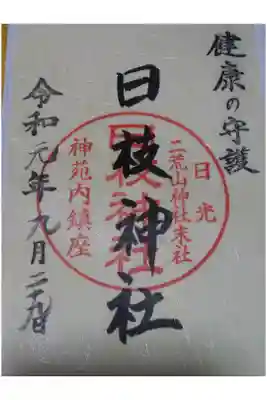 健康の守護
日枝神社
日光
二荒山神社末社
日枝神社
神苑内鎮座
令和元年九月二十九日